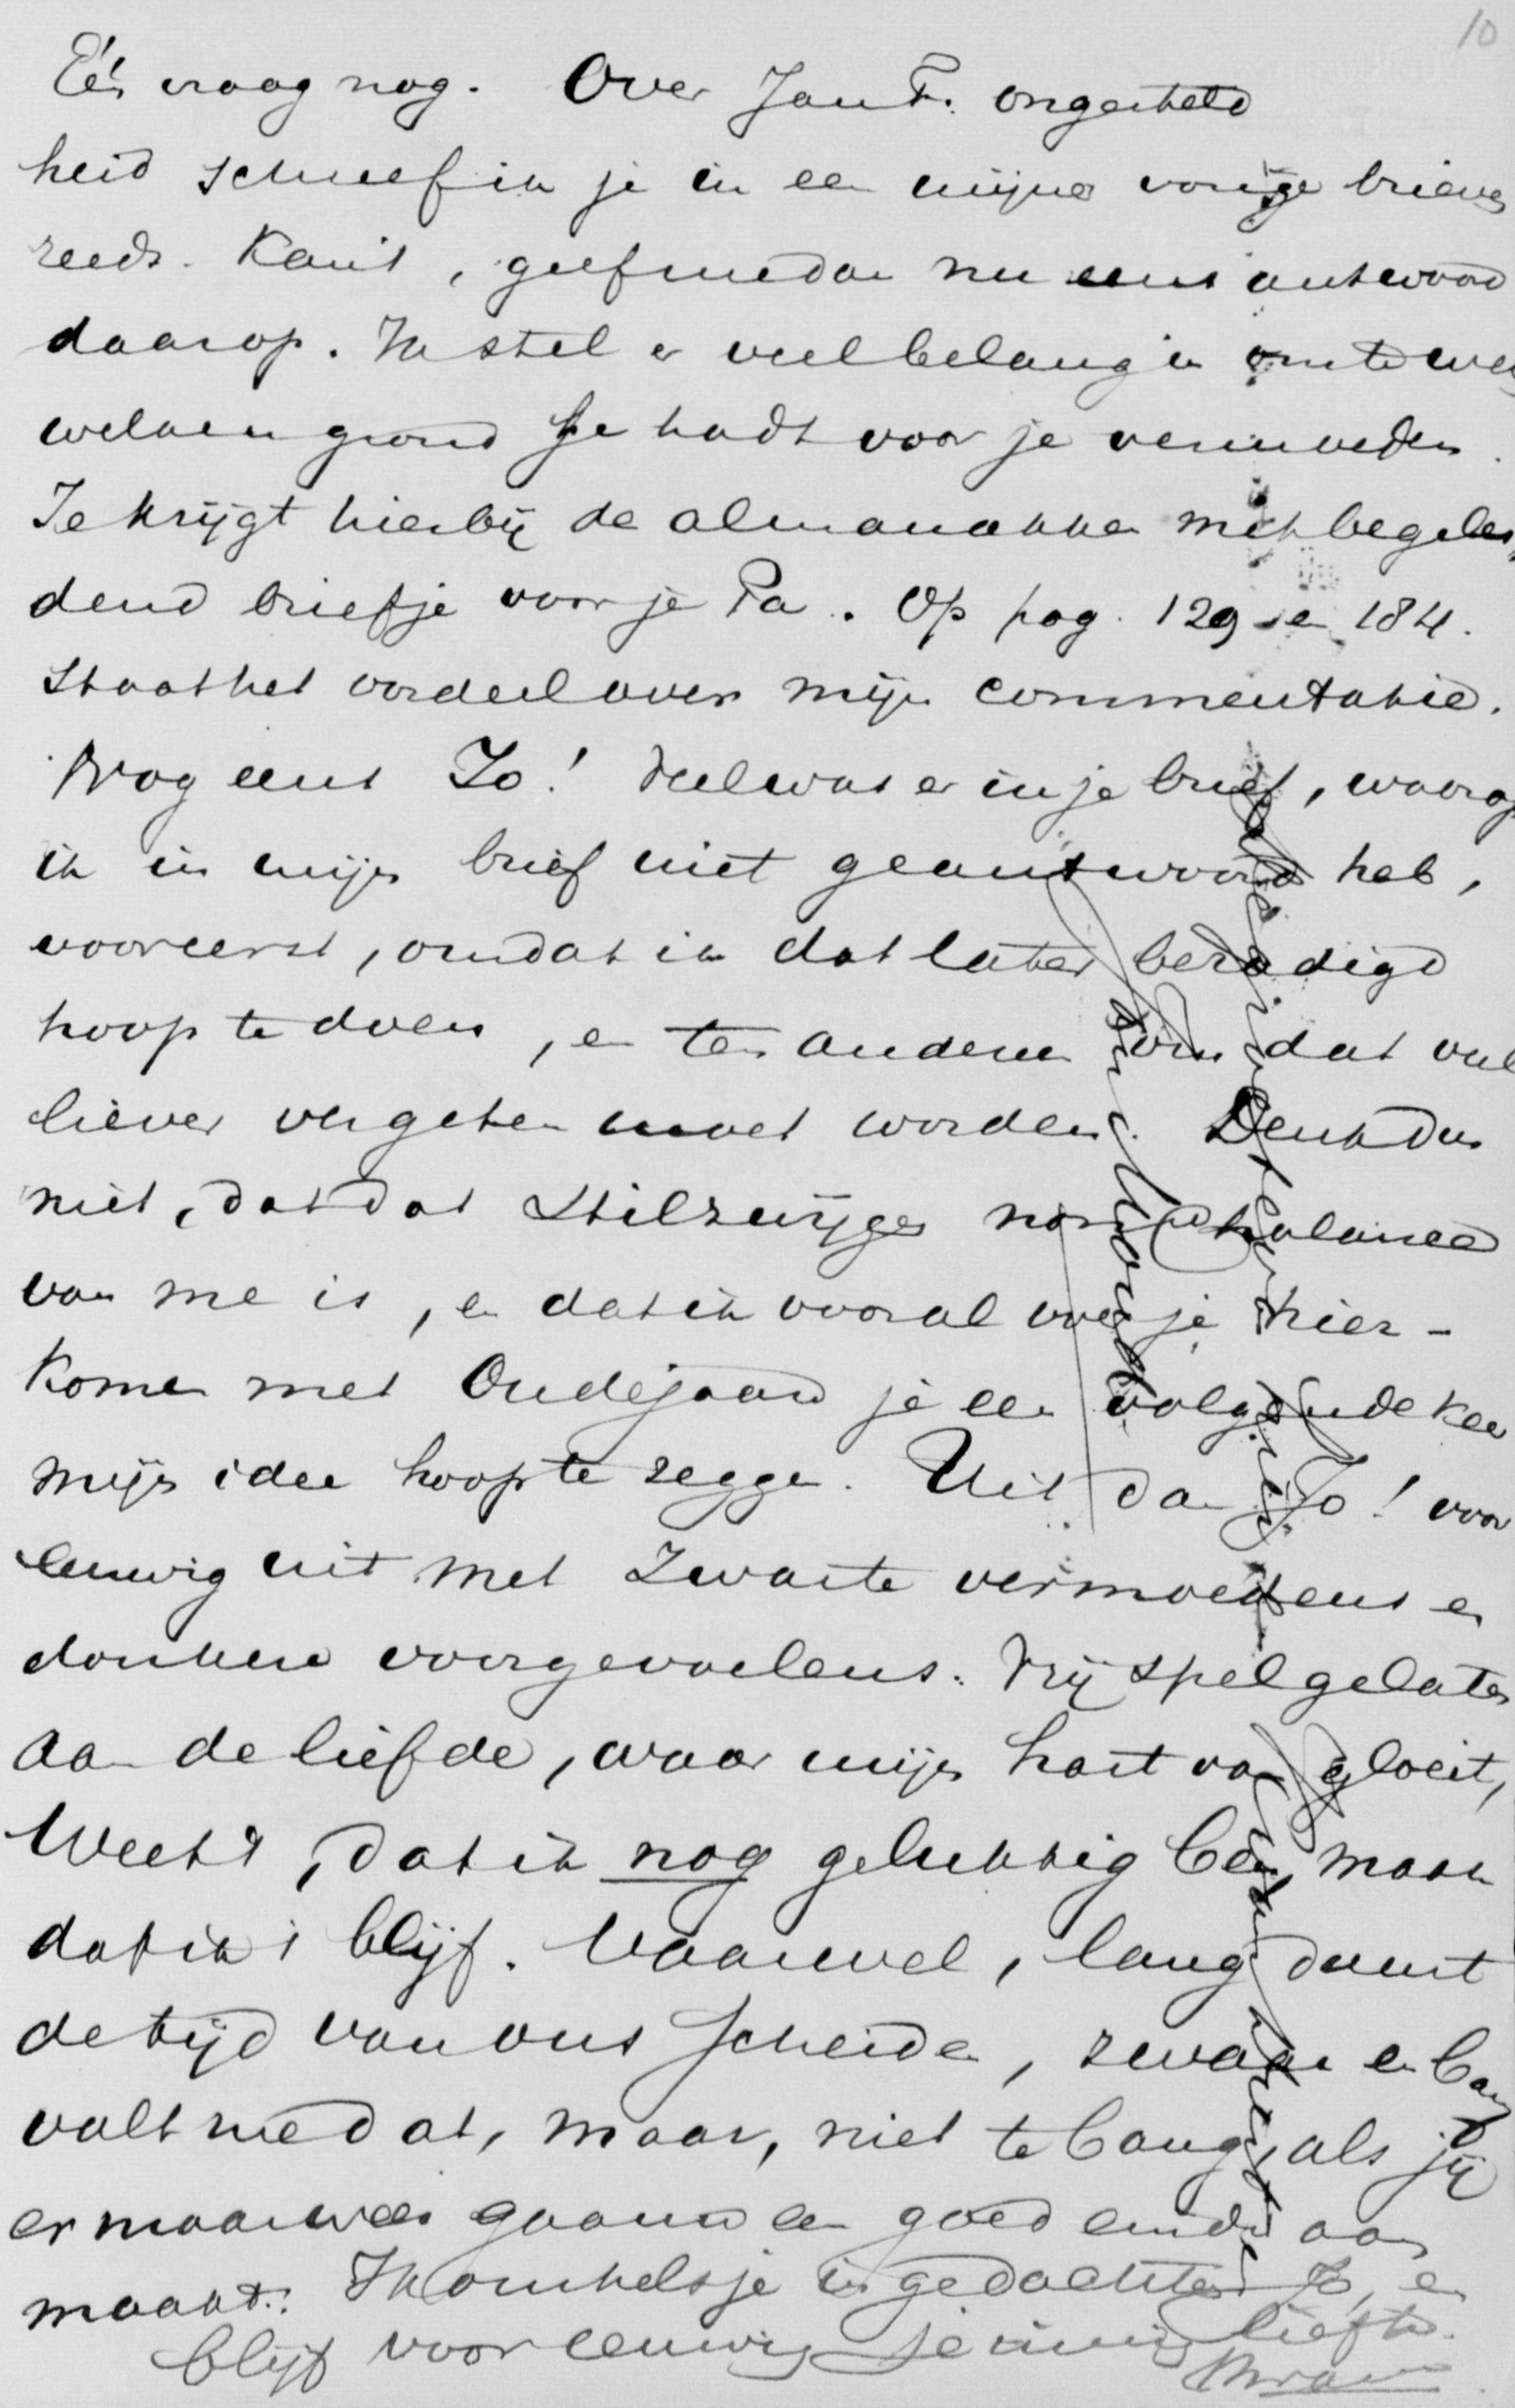 10
Één vraag nog. Over Jan F. ongesteld
heid schreef ik je in een mijner vorige brieven
reeds. Kan 't, geef me dan nu eens antwoord
daarop. Ik stel er veel belang in om te weten
welken grond je hadt voor je vermoeden.
Je krijgt hierbij de almanakken met begelei
dend briefje voor je Pa. Op pag. 129 en 184.
staat het oordeel over mijn commentatie.
Nog eens Jo! Veel was er in je brief, waarop
ik in mijn brief niet geantwoord heb,
vooreerst, omdat ik dat later bezadigd
hoop te doen, en ten anderen om dat veel
liever vergeten moet worden. Denk dus
niet, dat dat stilzwijgen nonchalance
van me is, en dat ik vooral over je hier-
komen met Oudejaar je een volgende keer
mijn idee hoop te zeggen. Uit dan Jo! voor
eeuwig uit met zwarte vermoedens en
donkere voorgevoelens. Vrij spel gelaten
aan de liefde, waar mijn hart van gloeit,
Weet, dat ik nog gelukkig ben, maak
dat ik 't blijf. Vaarwel, lang duurt
de tijd van ons scheiden, zwaar en bang
valt me dat, maar, niet te bang, als jij
er maar weer gaauw een goed einde aan
maakt. Ik omhels je in gedachten Jo, en
blijf voor eeuwig je innig liefh.
Bram